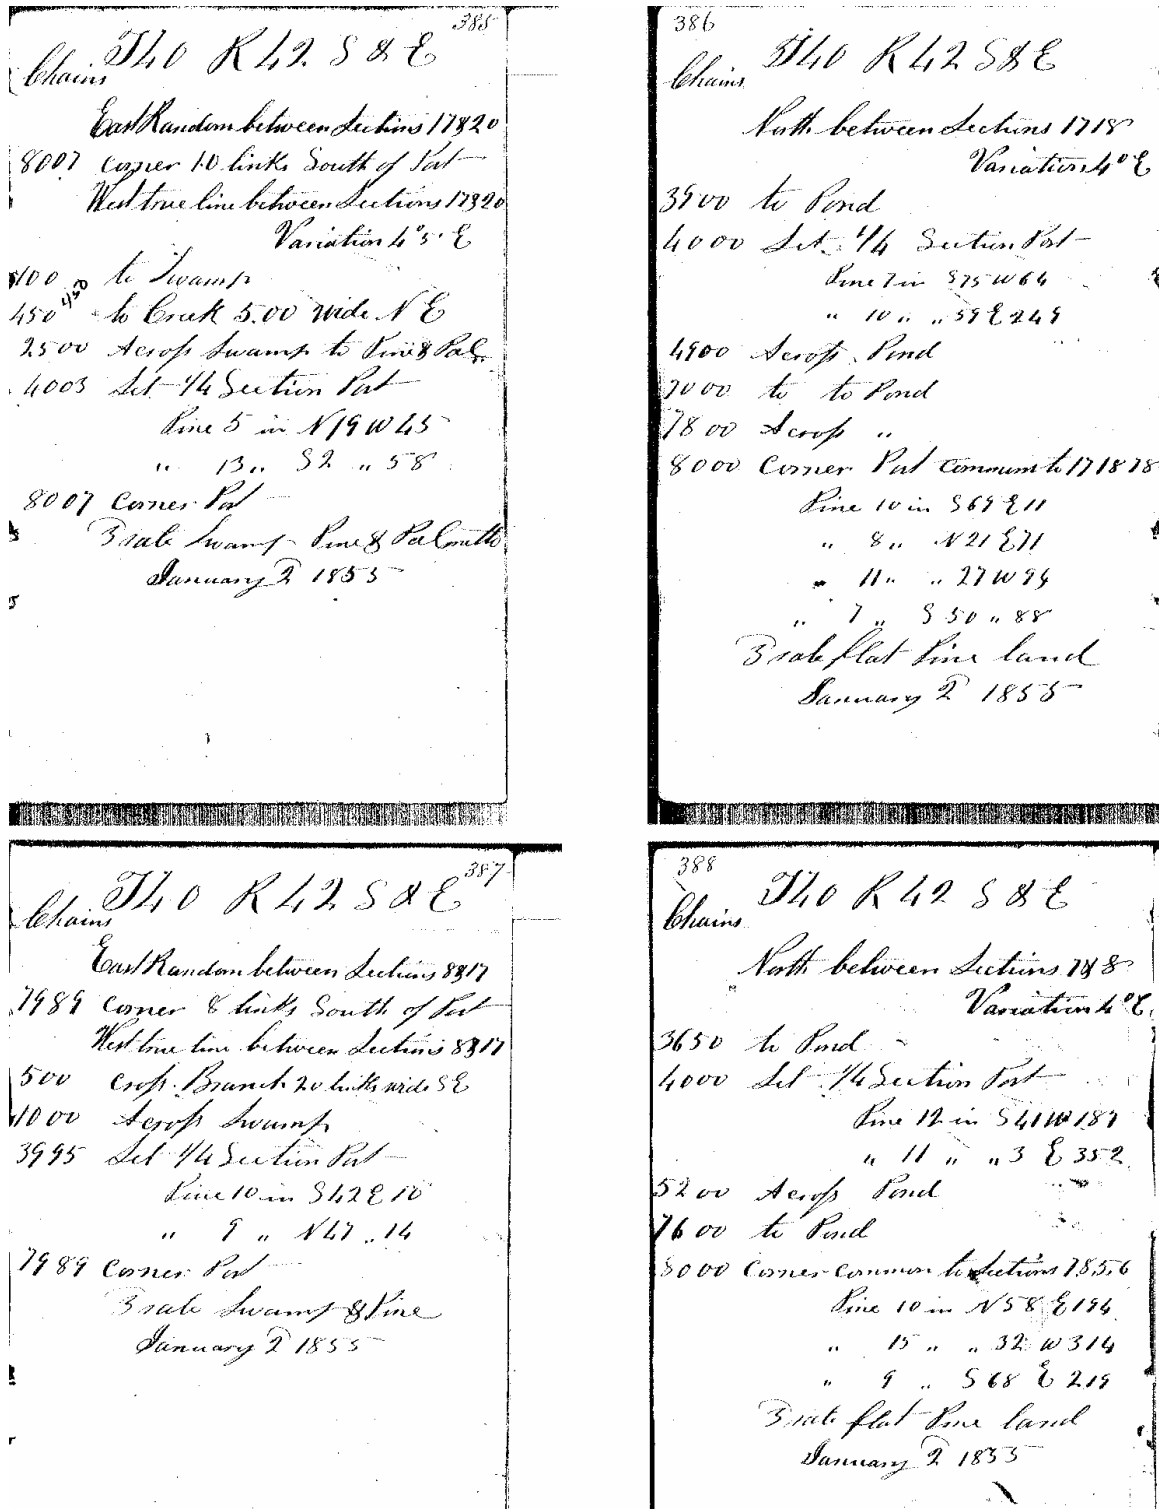 385
T40 R42 S & E
Chains
East Random between Sections 17&20
8007 Corner 10 links South of Post
West true line between Sections 17&20
Variation 4°5' E
100 to Swamp
450 450 to Creek 5.00 wide N E
2500 Across Swamp to Pine & Pal
4003 Set 1/4 Section Post
Pine 5 in N19W45
" 13 " S2 " 58
8007 Corner Post
3 rate Swamp Pine & Palmetto
January 2 1855
386
T40 R42 S&E
Chains
North between Sections 17 18
Variation 4° E
3900 to Pond
4000 Set 1/4 Section Post
Pine 7 in S75W64
" 10 " " 59 E 249
4900 Across Pond
7000 to to Pond
7800 Across "
8000 Corner Post Common to 17 18 7 8
Pine 10 in S69 E11
" 8 " N21 E71
" 11 " " 27W94
" 7 " S50 " 88
3 rate flat Pine land
January 2 1855
387
T40 R42 S & E
Chains
East Random between Sections 8&17
7989 Corner 8 links South of Post
West true line between Sections 8&17
500 Cross Branch 20 links wide S E
1000 Across Swamp
3995 Set 1/4 Section Post
Pine 10 in S42 E 18
" 9 " N47 " 14
7989 Corner Post
3 rate Swamp & Pine
January 2 1855
388
T40 R42 S & E
Chains
North between Sections 7&8
Variation 4° E.
3650 to Pond
4000 Set 1/4 Section Post
Pine 12 in S41W187
" 11 " " 3 E 352
5200 Across Pond
7600 to Pond
8000 Corner common to Sections 7.8.5.6
Pine 10 in N58 E194
" 15 " " 32 W314
" 9 " S68 E 219
3 rate flat Pine land
January 2 1855